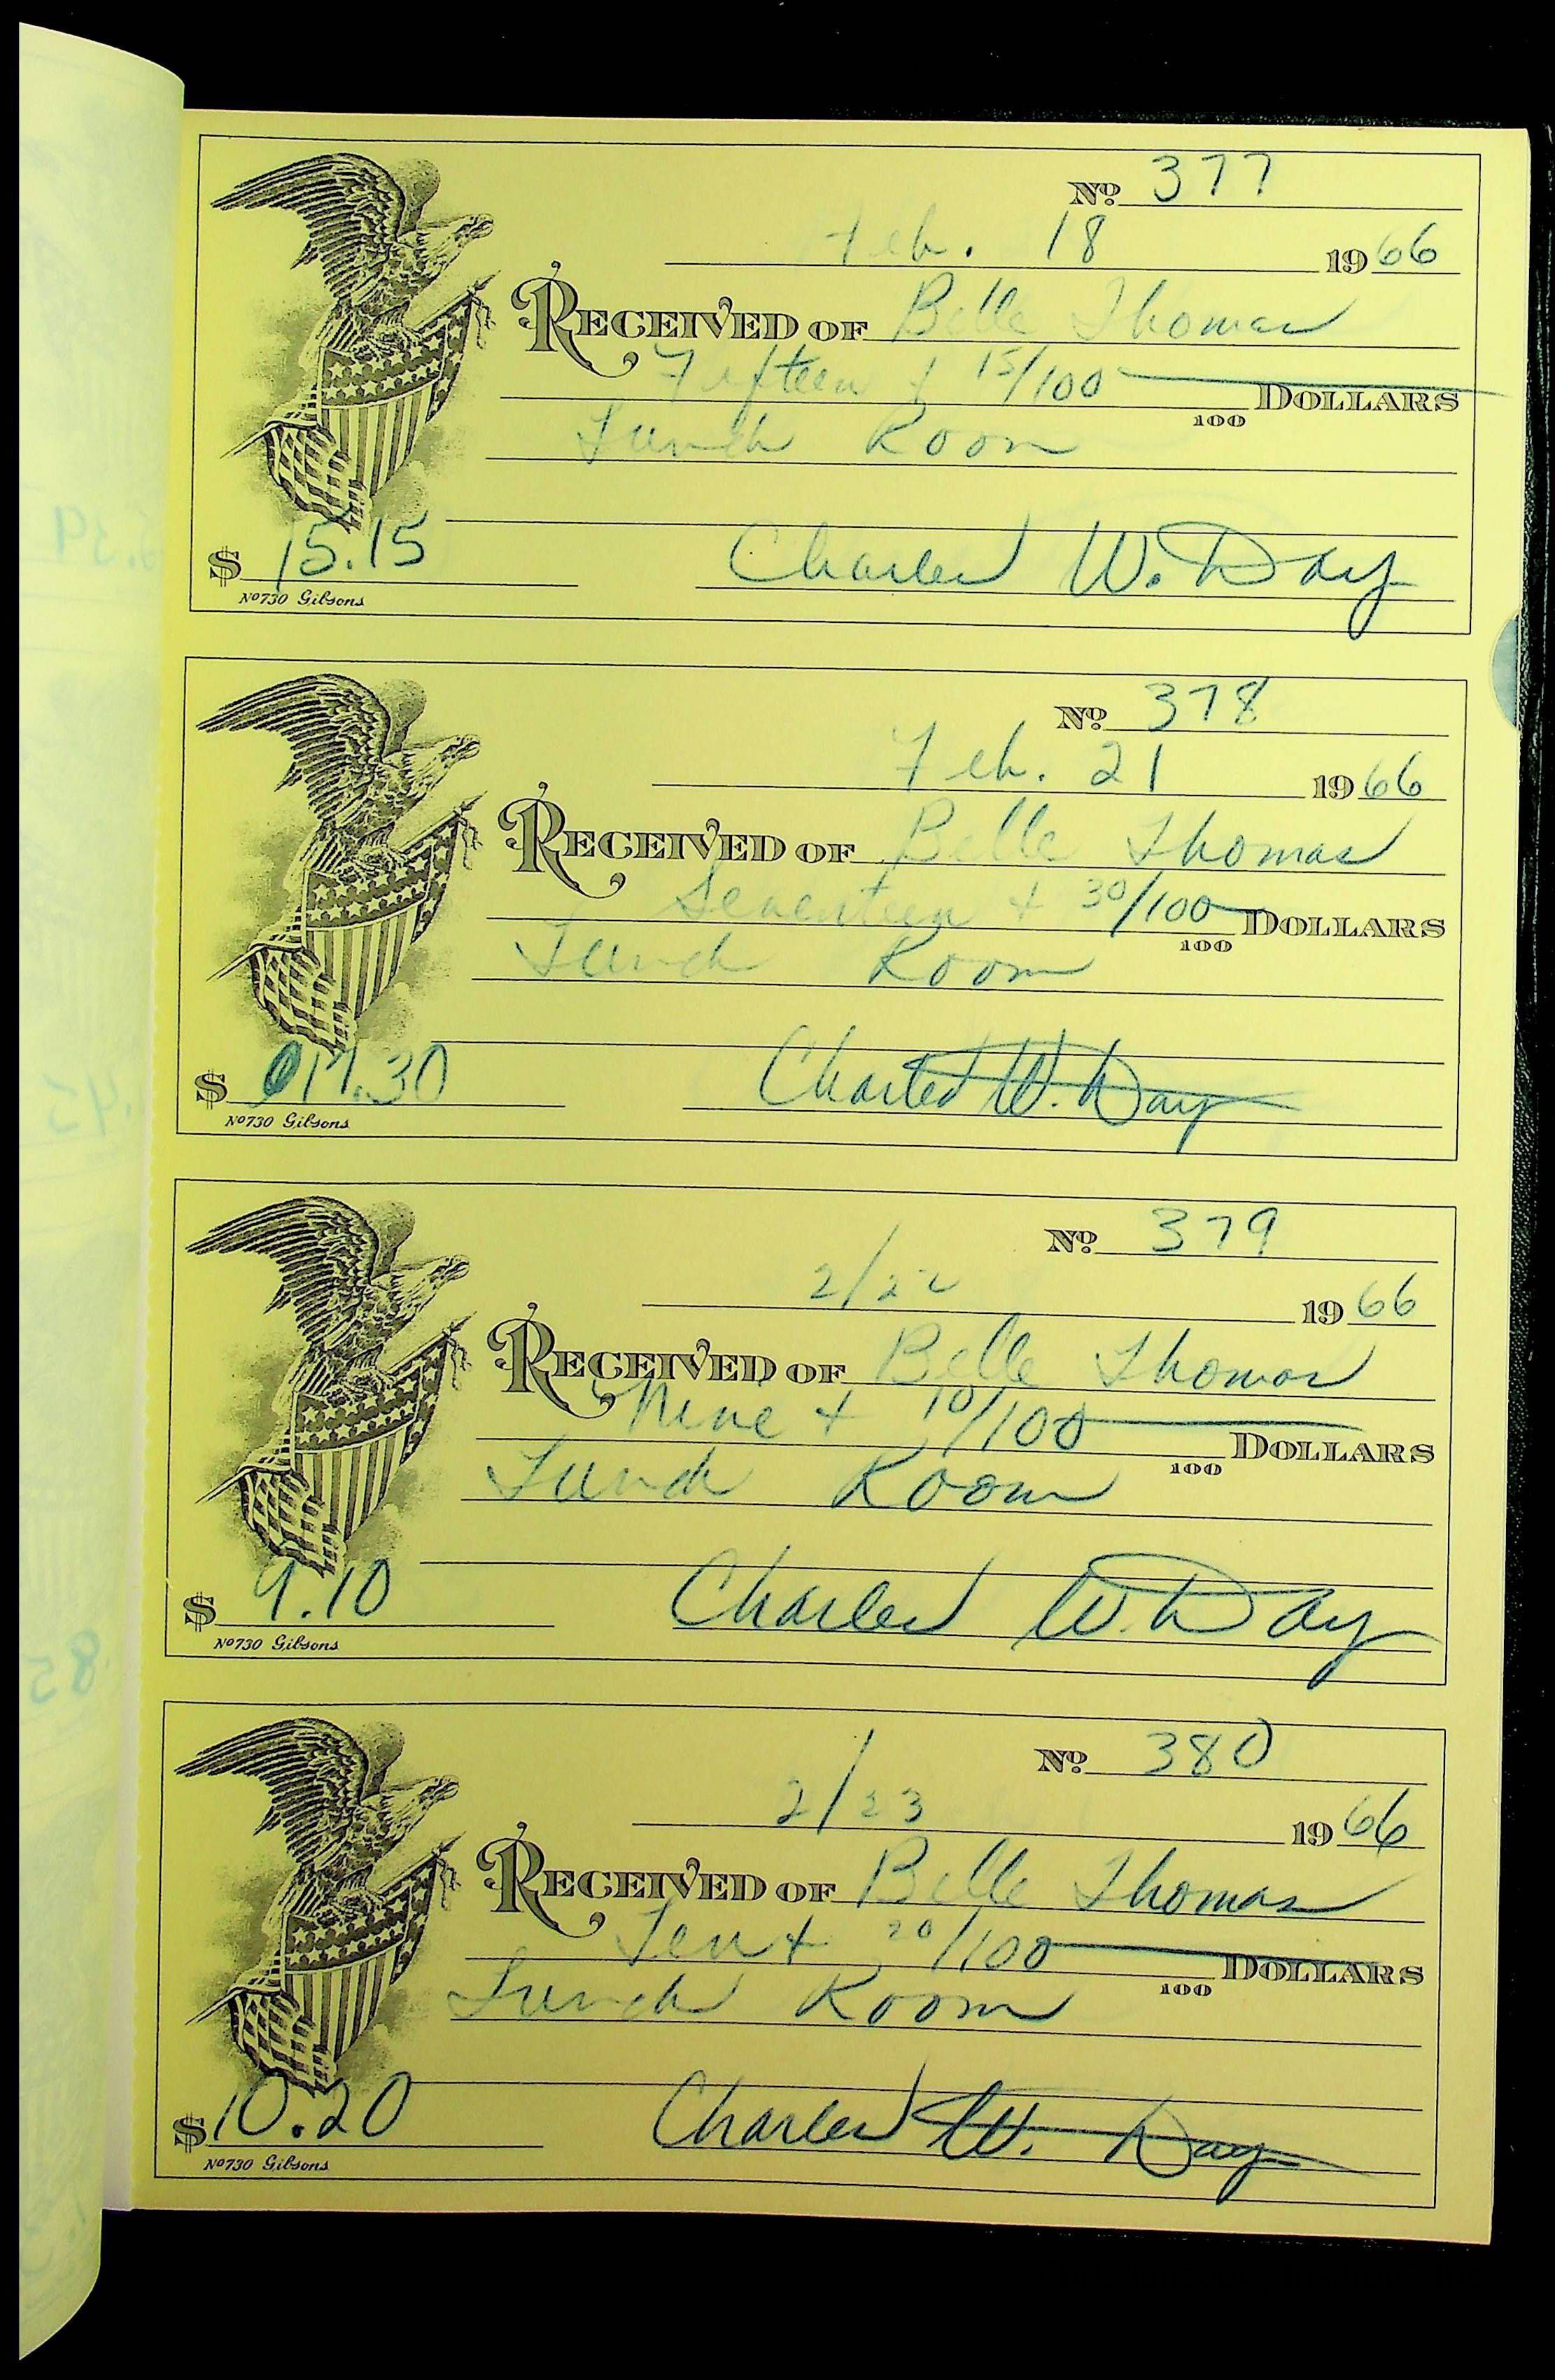 No. 377
Feb. 18 1966
RECEIVED OF Belle Thomas
Fifteen + 15/100 DOLLARS
100
Lunch Room
$ 15.15 Charles W. Day
No 730 Gibsons
No. 378
Feb. 21 1966
RECEIVED OF Belle Thomas
Seventeen + 30/100 DOLLARS
100
Lunch Room
$ 17.30 Charles W. Day
No 730 Gibsons
No. 379
2/22 1966
RECEIVED OF Belle Thomas
Nine + 10/100 DOLLARS
100
Lunch Room
$ 9.10 Charles W. Day
No 730 Gibsons
No. 380
2/23 1966
RECEIVED OF Belle Thomas
Ten + 20/100 DOLLARS
100
Lunch Room
$ 10.20 Charles W. Day
No 730 Gibsons